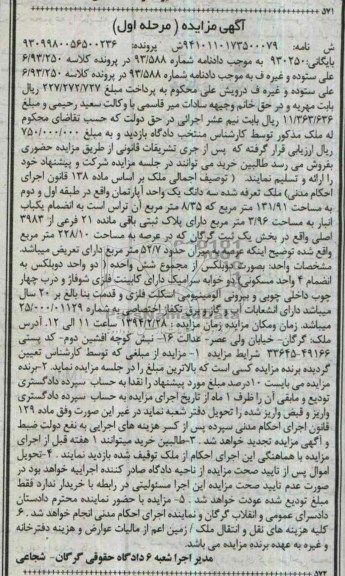 ۵۷۱
آگهی مزایده ( مرحله اول)
ش نامه: ۹۴۱۰۱۱۰۱۷۳۵۰۰۰۷۹ش پرونده: ۹۳۰۹۹۸۰۰۵۶۵۰۰۲۳۶
بایگانی: ۹۳۰۲۵۰ به موجب دادنامه شماره ۹۳/۵۸۸ در پرونده کلاسه ۶/۹۳/۲۵۰
علی ستوده و غیره ف به موجب دادنامه شماره ۹۳/۵۸۸ در پرونده کلاسه ۶/۹۳/۲۵۰
علی ستوده و غیره ف درویش علی محکوم به پرداخت مبلغ ۲۲۷/۲۷۲/۷۲۷ ریال
بابت مهریه و در حق خانم وجیهه سادات میر قاسمی با وکالت سعید رحیمی و مبلغ
۱۱/۳۶۳/۶۳۶ ریال بابت نیم عشر اجرائی در حق دولت که حسب تقاضای محکوم
له ملک مذکور توسط کارشناس منتخب دادگاه بازدید و به مبلغ ۷۵۰/۰۰۰/۰۰۰
ریال ارزیابی قرار گرفته که پس از جری تشریفات قانونی از طریق مزایده حضوری
بفروش می رسد طالبین خرید می توانند در جلسه مزایده شرکت و پیشنهاد خود
را ارائه و تسلیم نمایند. ( توصیف اجمالی ملک بر اساس ماده ۱۳۸ قانون اجرای
احکام مدنی) ملک تعرفه شده سه دانگ یک واحد آپارتمان واقع در طبقه اول و دوم
به مساحت ۱۳۱/۹۱ متر مربع که ۸/۳۵ متر مربع آن تراس است به انضمام یکباب
انبار به مساحت ۳/۹۶ متر مربع دارای پلاک ثبتی باقی مانده ۲۱ فرعی از ۳۹۸۳
اصلی واقع در بخش یک ثبت گرگان که در عرصه به مساحت ۲۲۸/۱۰ متر مربع
واقع شده توضیح اینکه عرصه به میزان حدود ۵۲/۷ متر مربع دارای تعریض میباشد.
مشخصات واحد: بصورت دوبلکس از مجموع شش واحده ( دو واحد دوبلکس به
انضمام ۴ واحد مسکونی) دو خوابه سرامیک دارای کابینت فلزی شوفاژ و درب چهار
چوب داخلی چوبی و بیرونی آلومینیومی اسکلت فلزی و قدمت بنا بالغ بر ۲۰ سال
میباشد دارای انشعابات آب و گاز و برق تکفاز اختصاصی به شماره ۲۵/۰۰۰/۰۱۱۲۹
میباشد. زمان ومکان مزایده زمان مزایده : ۱۳۹۴/۲/۲۸ ساعت ۱۱ الی ۱۲. آدرس
ملک: گرگان- خیابان ولی عصر- عدالت ۱۶- نبش کوچه افشین دوم- کد پستی
۴۹۱۶۶-۳۳۶۴۵ شرایط مزایده ۱- مزایده از مبلغی که توسط کارشناس تعیین
گردیده برنده مزایده کسی است که بالاترین مبلغ را در جلسه مزایده نماید. ۲-برنده
مزایده می بایست ۱۰درصد مبلغ مورد پیشنهاد را نقدا به حساب سپرده دادگستری
تودیع و مابقی آن را ظرف ۱ ماه از تاریخ اجرای مزایده به حساب سپرده دادگستری
واریز و قبض واریز شده را تحویل دفتر شعبه نماید در غیر این صورت وفق ماده ۱۲۹
قانون اجرای احکام مدنی سپرده پس از کسر هزینه های اجرایی به نفع دولت ضبط
و آگهی مزایده تجدید خواهد شد. ۳-طالبین خرید میتوانند ۱ هفته قبل از اجرای
مزایده با هماهنگی این اجرای احکام از ملک توقیف شده بازدید نمایند. ۴-تحویل
اموال پس از تایید صحت مزایده از ناحیه دادگاه صادر کننده اجراییه خواهد بود در
صورت عدم تایید صحت مزایده این اجرا مسئولیتی در رابطه با خریدار ندارد فقط
مبلغ تودیع شده عودت خواهد شد. ۵- مزایده با حضور نماینده محترم دادستان
دادسرای عمومی و انقلاب گرگان و نماینده اجرای احکام مدنی انجام خواهد شد. ۶.
کلیه هزینه های نقل و انتقال ملک / زمین اعم از مالیات عوارض و هزینه دفترخانه
و غیره به عهده برنده مزایده می باشد.
مدیر اجرا شعبه ۶ دادگاه حقوقی گرگان- شجاعی
۵۷۲